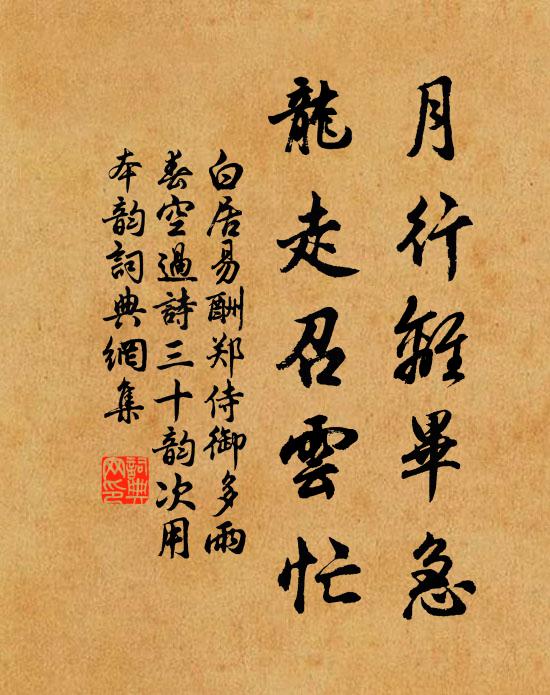 月行離畢急
龍走召雲忙
白居易酬郑侍御多雨
春空過詩三十韵次用
本韵詞典網集
詞典
网印